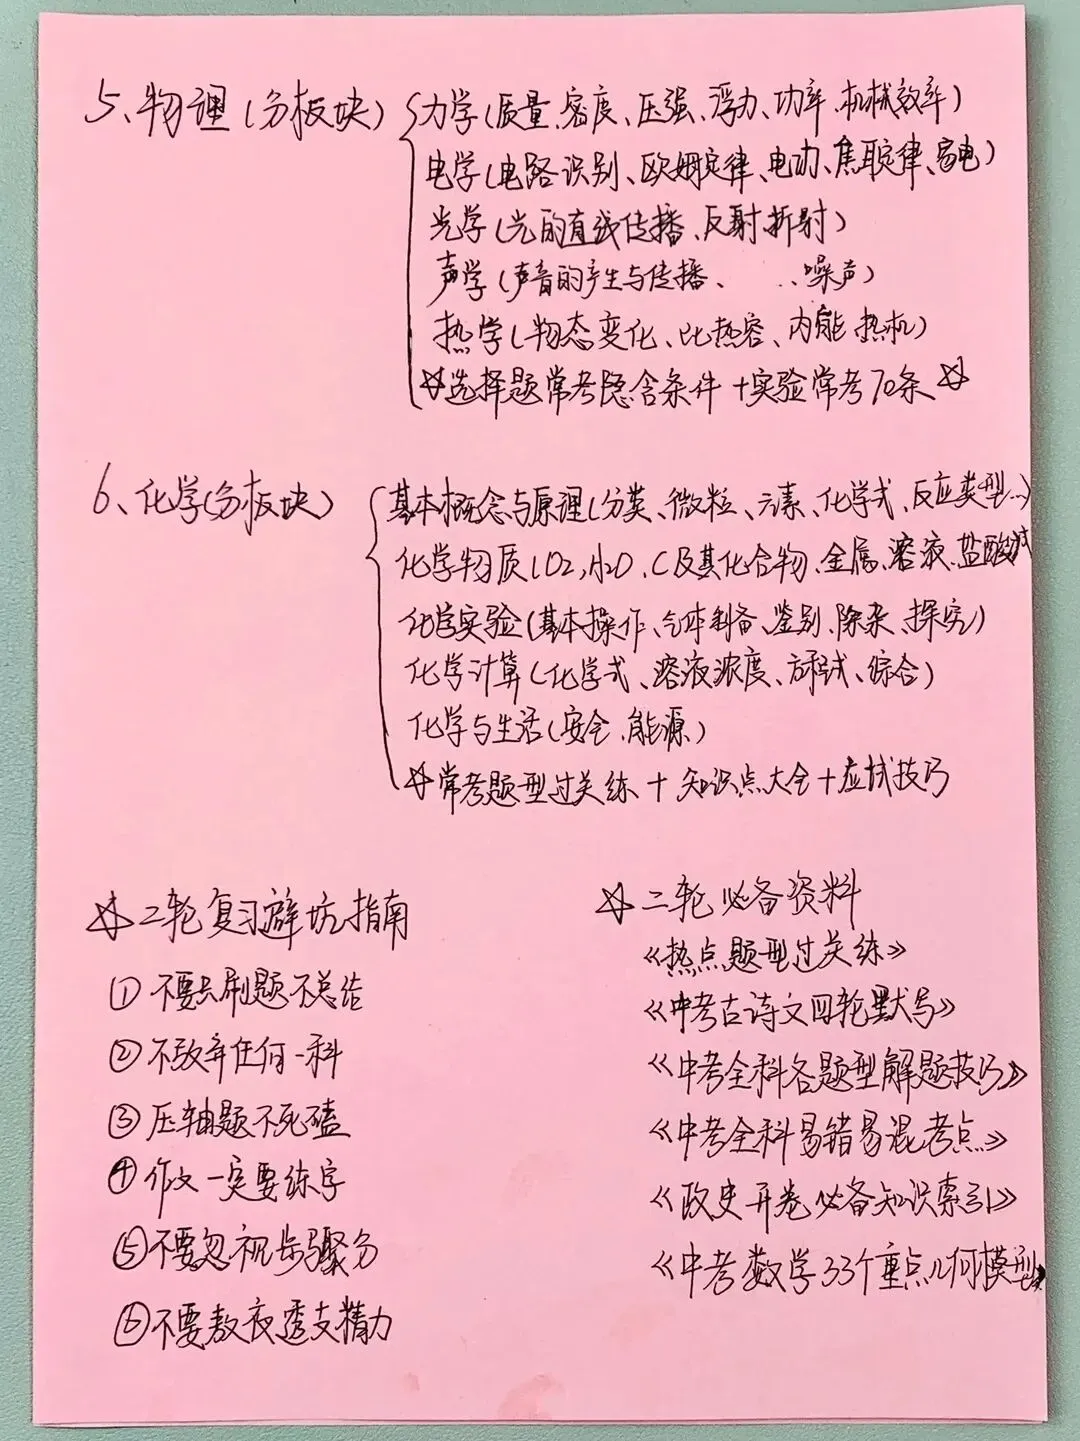 5、物理(分板块)
力学(质量、密度、压强、浮力、功率、机械效率)
电学(电路识别、欧姆定律、电功、焦耳定律、家电)
光学(光的直线传播、反射折射)
声学(声音的产生与传播、 ..噪声)
热学(物态变化、比热容、内能、热机)
☆选择题常考隐含条件+实验常考70条☆
6、化学(分板块)
基本概念与原理(分类、微粒、元素、化学式、反应类型...)
化学物质(O2,H2O、C及其化合物、金属、溶液、盐酸碱
化学实验(基本操作、气体制备、鉴别、除杂、探究)
化学计算(化学式、溶液浓度、方程式、综合)
化学与生活(安全、能源)
☆常考题型过关练+知识点大全+应试技巧
☆二轮复习避坑指南
①不要只刷题不总结
②不放弃任何一科
③压轴题不死磕
④作文一定要练字
⑤不要忽视步骤分
⑥不要熬夜透支精力
☆二轮必备资料
《热点题型过关练》
《中考古诗文四轮默写》
《中考全科各题型解题技巧》
《中考全科易错易混考点》
《政史开卷必备知识索引》
《中考数学33个重点几何模型》